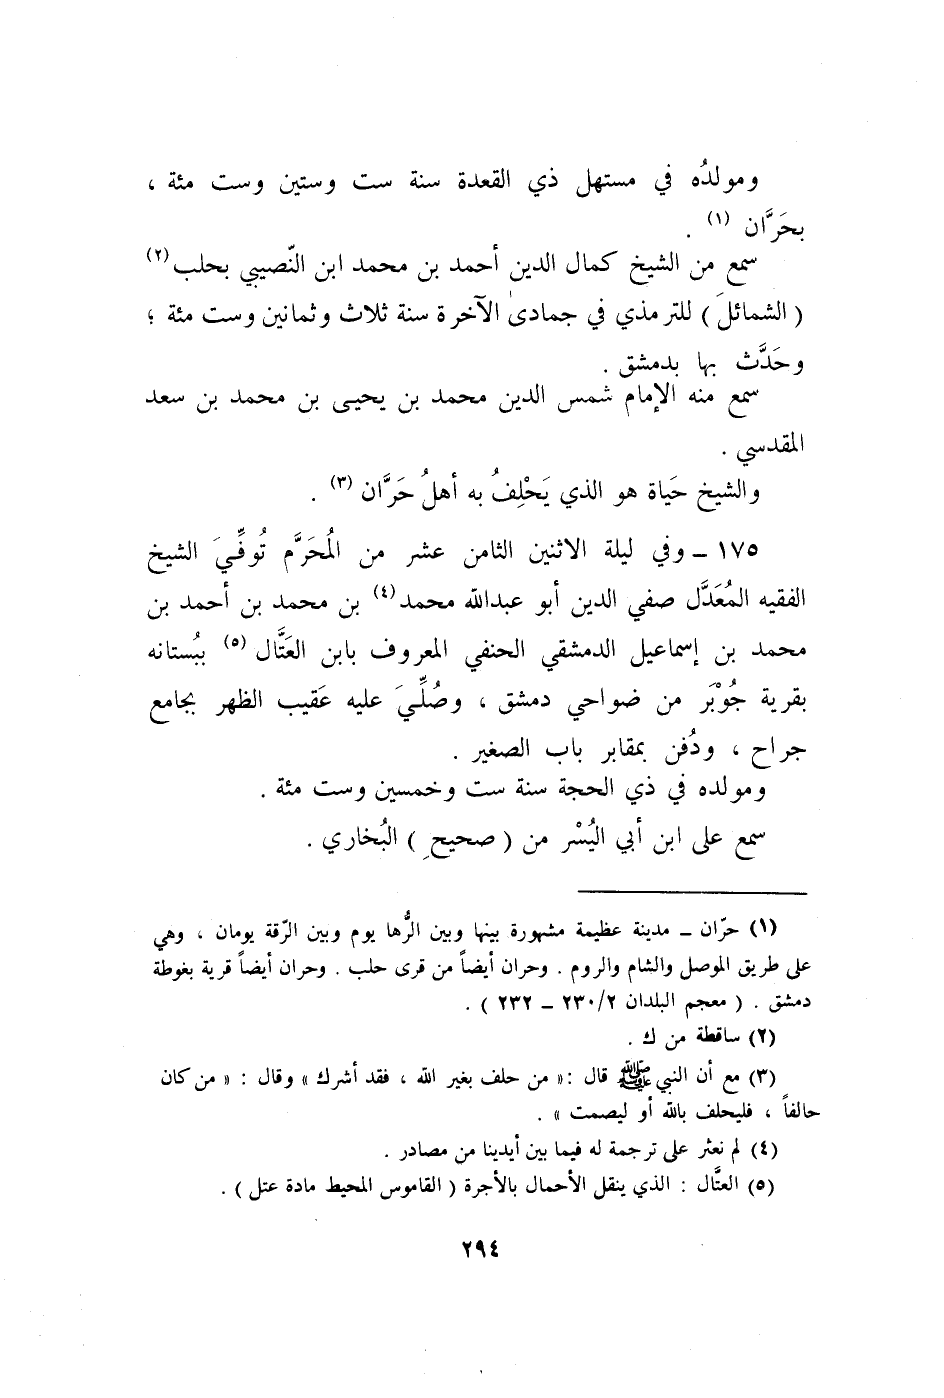 ومولدُه في مستهل ذي القعدة سنة ست وستين وست مئة ،
بحَرَّان (١) .
سمع من الشيخ كمال الدين أحمد بن محمد ابن النّصيبي بحلب (٢)
( الشمائلَ ) للترمذي في جمادىٰ الآخرة سنة ثلاث وثمانين وست مئة ؛
وحَدَّث بها بدمشق .
سمع منه الإمام شمس الدين محمد بن يحيى بن محمد بن سعد
المقدسي .
والشيخ حَياة هو الذي يَحْلِفُ به أهلُ حَرَّان (٣) .
١٧٥ – وفي ليلة الاثنين الثامن عشر من المُحَرَّم تُوفِّيَ الشيخ
الفقيه المُعَدَّل صفي الدين أبو عبدالله محمد (٤) بن محمد بن أحمد بن
محمد بن إسماعيل الدمشقي الحنفي المعروف بابن العَتَّال (٥) ببُستانه
بقرية جُوْبَر من ضواحي دمشق ، وصُلِّيَ عليه عَقيب الظهر بجامع
جراح ، ودُفن بمقابر باب الصغير .
ومولده في ذي الحجة سنة ست وخمسين وست مئة .
سمع على ابن أبي اليُسْر من ( صحيحِ ) البُخاري .
(١) حرّان – مدينة عظيمة مشهورة بينها وبين الرُّها يوم وبين الرّقة يومان ، وهي
على طريق الموصل والشام والروم . وحران أيضاً من قرى حلب . وحران أيضاً قرية بغوطة
دمشق . ( معجم البلدان ٢/ ٢٣٠ – ٢٣٢ ) .
(٢) ساقطة من ك .
(٣) مع أن النبي ﷺ قال :« من حلف بغير الله ، فقد أشرك » وقال : « من كان
حالفاً ، فليحلف بالله أو ليصمت » .
(٤) لم نعثر على ترجمة له فيما بين أيدينا من مصادر .
(٥) العتَّال : الذي ينقل الأحمال بالأجرة ( القاموس المحيط مادة عتل ) .
٢٩٤